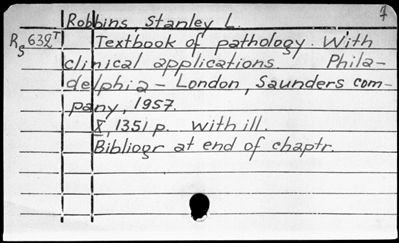 7
Robbins, Stanley L.
Rs 632T Textbook of pathology. With
clinical applications Phila-
delphia - London, Saunders com-
pany, 1957.
X, 1351 p. with ill.
Bibliogr at end of chaptr.